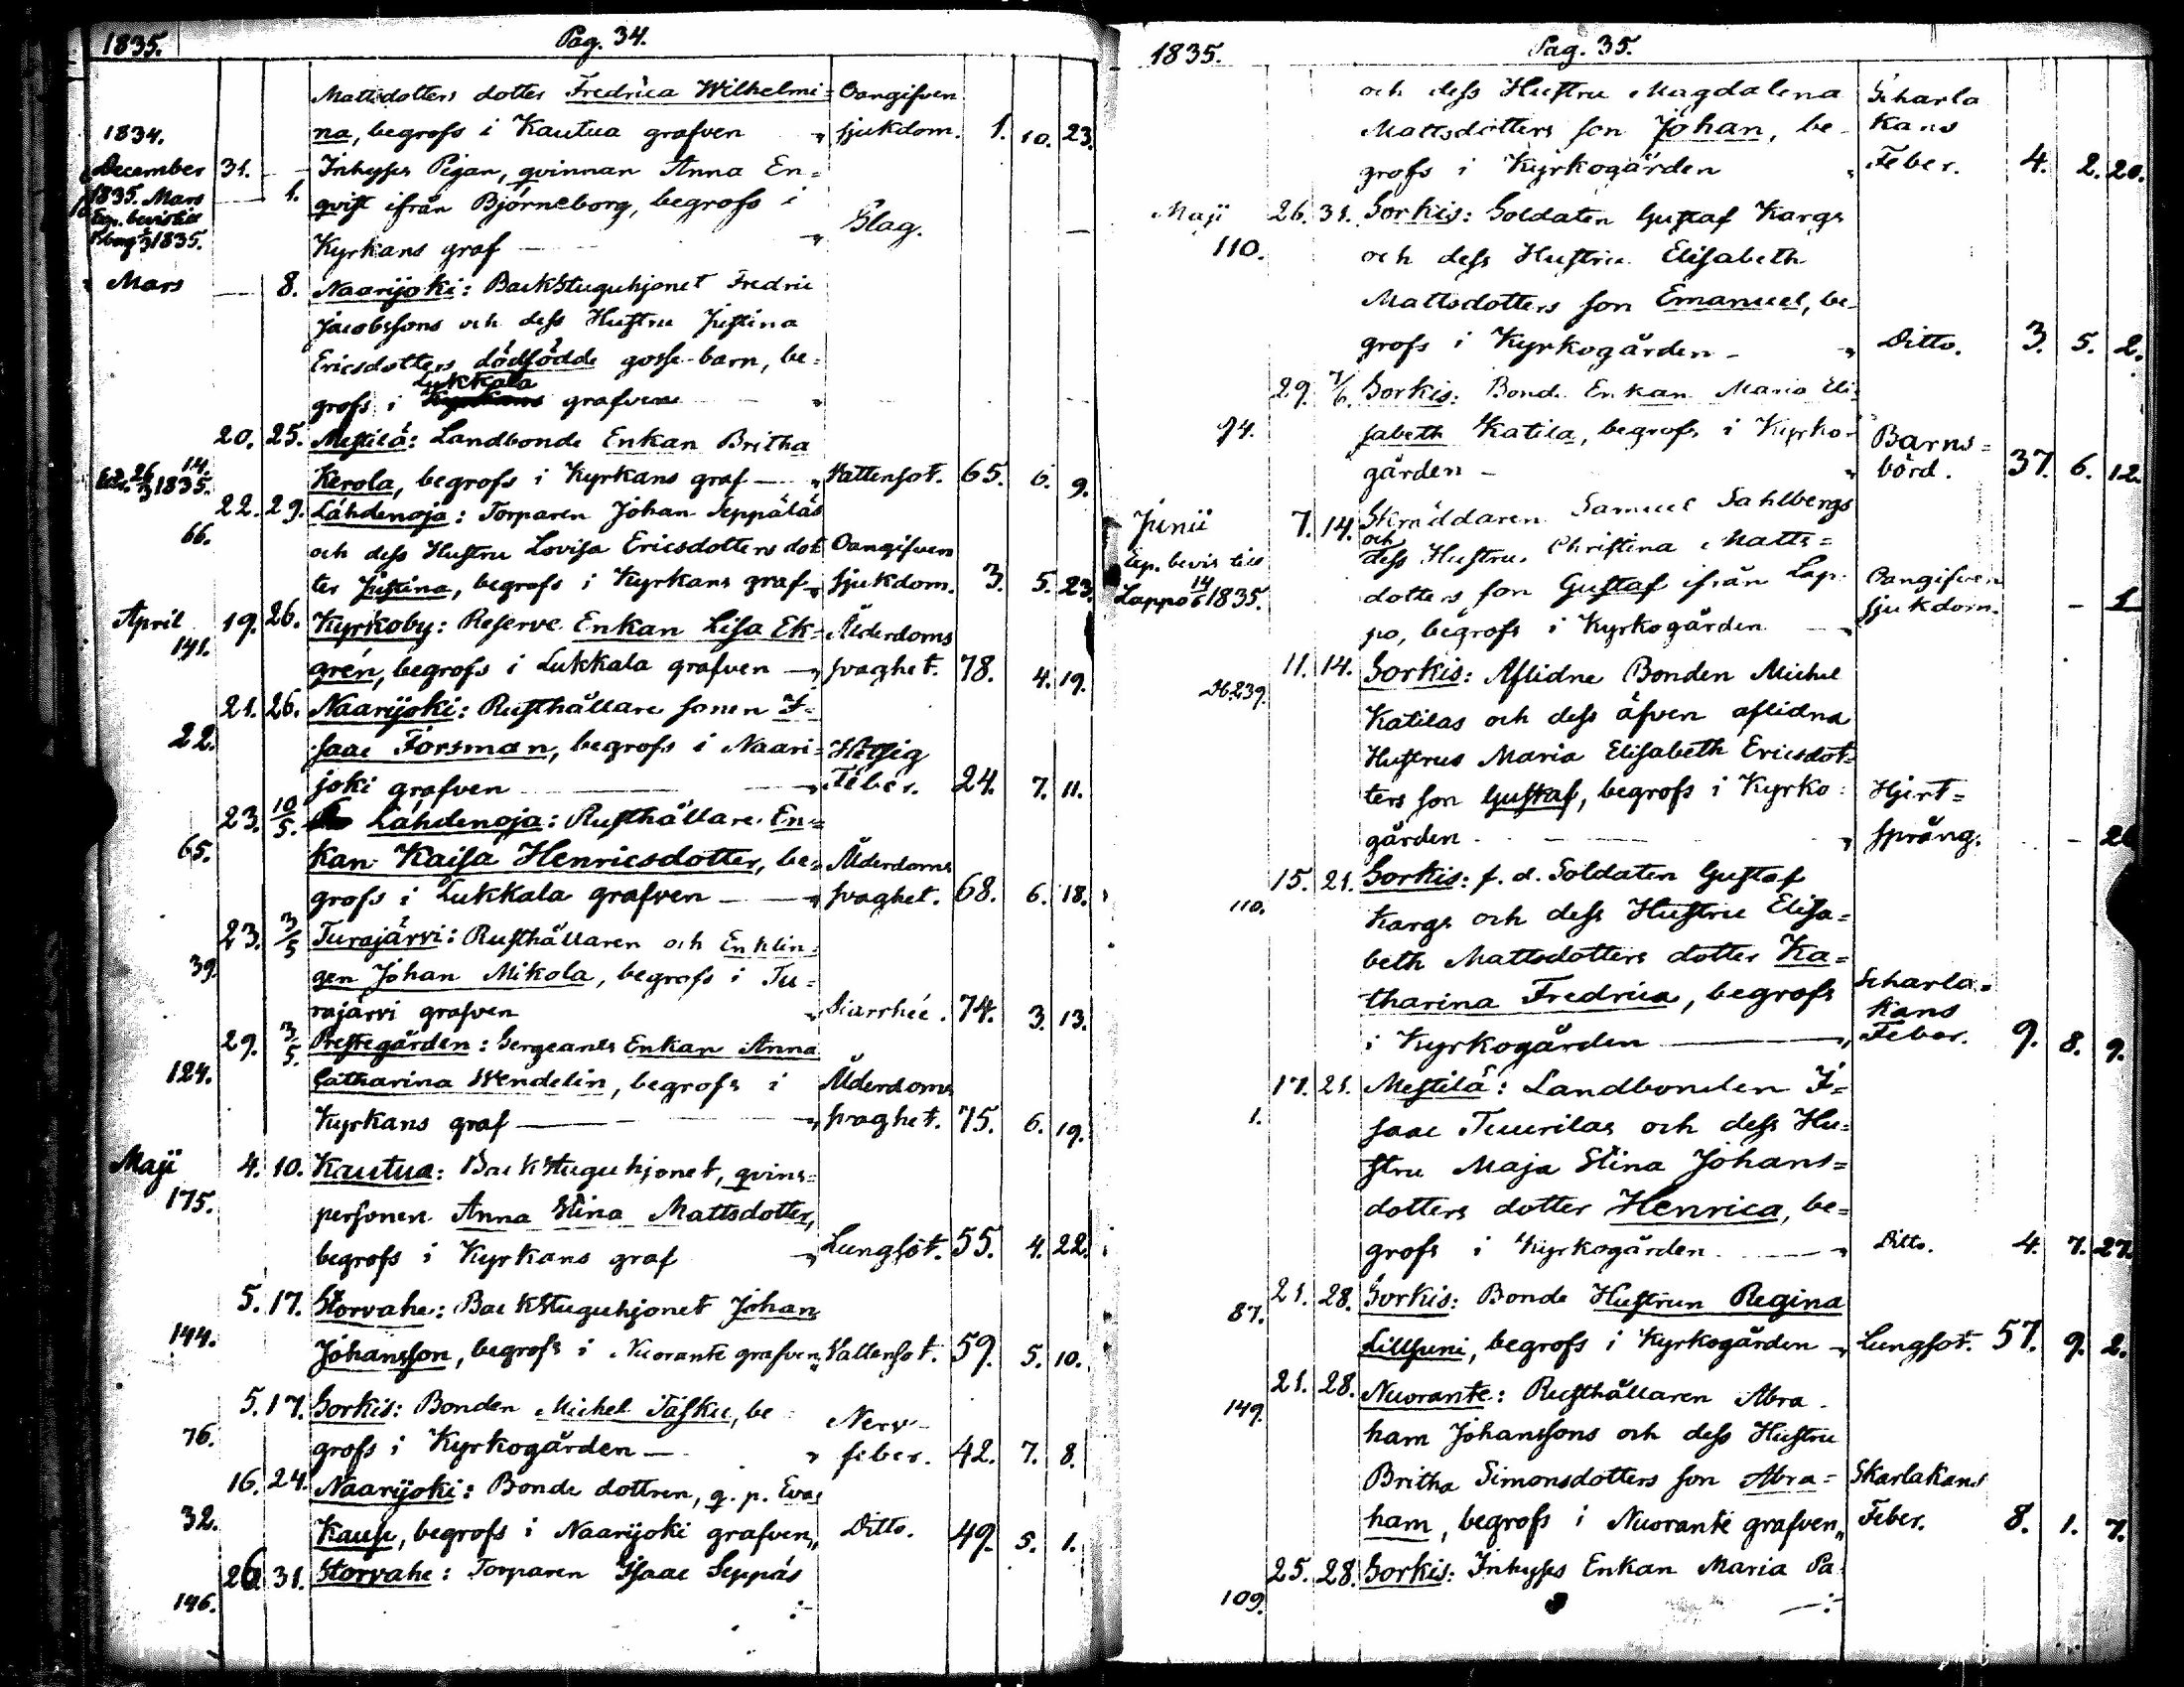 1835. Pag. 34.
Mattsdotters dotter Fredrica Wilhelmi= Oangifven
na, begrofs i Kautua grafven „ sjukdom. 1. 10. 23.
1834.
December 31. Inhyses Pigan, qvinnan Anna En=
1835. Mars 1. qvist ifrån Björneborg, begrofs i
Exp. beviset Slag.
1835. Kyrkans graf „
Mars 8. Naarijoki: Backstuguhjonet Fredric
Jacobssons och dess Hustru Justina
Ericsdotters dödfödde gosse-barn, be=
Lukkala
grofs i Kyrkans grafven „
20. 25. Mestilä: Landbonde Enkan Britha
14.
26/3 1835. Kerola, begrofs i Kyrkans graf „ Vattensot. 65. 6. 9.
22. 29. Lähdenoja: Torparen Johan Seppäläs
66. och dess Hustru Lovisa Ericsdotters dot Oangifven
ter Justina, begrofs i Kyrkans graf „ sjukdom. 3. 5. 23.
April 19. 26. Kyrkoby: Reserve Enkan Lisa Ek= Ålderdoms
141. grén, begrofs i Lukkala grafven „ svaghet. 78. 4. 19.
21. 26. Naarijoki: Rusthållare sonen I=
22. saac Forsman, begrofs i Naari= Hetsig
joki grafven „ Feber. 24. 7. 11.
23. 10/5. Lähdenoja: Rusthållare En=
65. kan Kaisa Henricsdotter, be= Ålderdoms
grofs i Lukkala grafven „ svaghet. 68. 6. 18.
23. 3/5 Turajärvi: Rusthållaren och Enklin=
39. gen Johan Mikola, begrofs i Tu=
rajärvi grafven „ Diarrhée. 74. 3. 13.
29. 3/5. Prestegården: Sergeants Enkan Anna
124. Catharina Wendelin, begrofs i Ålderdoms
Kyrkans graf „ svaghet. 75. 6. 19.
Maji 4. 10. Kautua: Backstuguhjonet, qvins=
175. personen Anna Stina Mattsdotter,
begrofs i Kyrkans graf „ Lungsot. 55. 4. 22.
5. 17. Storvahe: Backstuguhjonet Johan
144. Johansson, begrofs i Nuorante grafven „ Vattensot. 59. 5. 10.
5. 17. Sorkis: Bonden Michel Täsku, be Nerv-
76. grofs i Kyrkogården „ feber. 42. 7. 8.
16. 24. Naarijoki: Bonde dottren, q. p. Eva
32. Kause, begrofs i Naarijoki grafven „ Ditto. 49. 5. 1.
26 31. Storvahe: Torparen Isaac Seppäs
146. :-
1835. Pag. 35.
och dess Hustru Magdalena Scharla
Mattsdotters son Johan, be- kans
grofs i Kyrkogården „ Feber. 4. 2. 20.
Maji 26. 31. Sorkis: Soldaten Gustaf Kargs
110. och dess Hustru Elisabeth
Mattsdotters son Emanuel, be-
grofs i Kyrkogården „ Ditto. 3. 5. 2.
29. 7/6. Sorkis: Bonde Enkan Maria Eli=
94. sabeth Katila, begrofs i Kyrko= Barns=
gården „ börd. 37. 6. 12.
Junii 7. 14. Skräddaren Samuel Sahlbergs
och
Exp. bevis till dess Hustru Christina Matts=
Lappo 14/6 1835. dotters son Gustaf ifrån Lap= Oangifven
po, begrofs i Kyrkogården „ sjukdom. - 1
11. 14. Sorkis: Aflidne Bonden Michel
239. Katilas och dess äfven aflidna
Hustrus Maria Elisabeth Ericsdot=
ters son Gustaf, begrofs i Kyrko= Hjert=
gården „ språng. -
15. 21. Sorkis: f. d. Soldaten Gustaf
110. Kargs och dess Hustru Elisa=
beth Mattsdotters dotter Ka=
tharina Fredrica, begrofs Scharla=
kans
i Kyrkogården „ Feber. 9. 8. 9.
17. 21. Mestilä: Landbonden I=
1. saac Tuurilas och dess Hu=
stru Maja Stina Johans=
dotters dotter Henrica, be=
grofs i Kyrkogården „ Ditto. 4. 7. 27.
21. 28. Sorkis: Bonde Hustrun Regina
87. Lillsuni, begrofs i Kyrkogården „ Lungsot. 57. 9. 2.
21. 28. Nuorante: Rusthållaren Abra-
149. ham Johanssons och dess Hustru
Britha Simonsdotters son Abra= Skarlakans
ham, begrofs i Nuorante grafven „ Feber. 8. 1. 7.
25. 28. Sorkis: Inhyses Enkan Maria Pa
109. :-